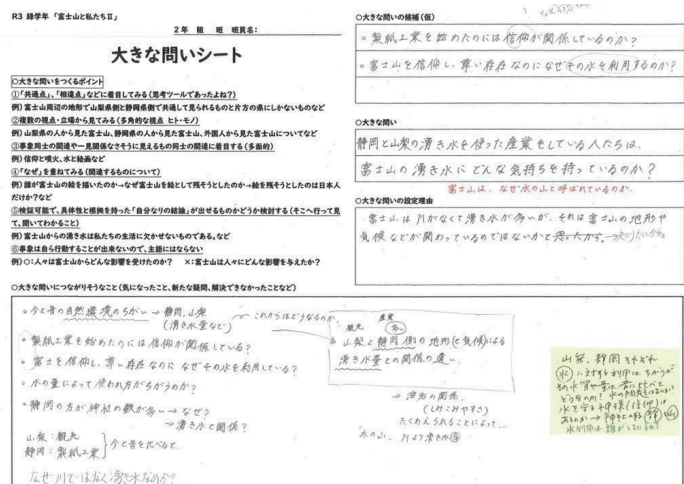 R3 緑学年 「富士山と私たちⅡ」
2年 組 班 班員名:
大きな問いシート
○大きな問いをつくるポイント
①「共通点」、「相違点」などに着目してみる(思考ツールであったよね?)
例)富士山周辺の地形で山梨県側と静岡県側で共通して見られるものと片方の県にしかないものなど
②複数の視点・立場から見てみる(多角的な視点 ヒト・モノ)
例)山梨県の人から見た富士山、静岡県の人から見た富士山、外国人から見た富士山についてなど
③事象同士の関連や一見関係なさそうに見えるもの同士の関連に着目する(多面的)
例)信仰と噴火、水と絵画など
④「なぜ」を重ねてみる(関連するものについて)
例)誰が富士山の絵を描いたのか→なぜ富士山を絵として残そうとしたのか→絵を残そうとしたのは日本人
だけか?など
⑤検証可能で、具体性と根拠を持った「自分なりの結論」が出せるものかどうか検討する(そこへ行って見
て、聞いてわかること)
例)富士山からの湧き水は私たちの生活に欠かせないものである。など
⑥事象は自ら行動することが出来ないので、主語にはならない
例)○:人々は富士山からどんな影響を受けたのか? ×:富士山は人々にどんな影響を与えたか?
○大きな問いの候補(仮)
○製紙工業を始めたのには信仰が関係しているのか?
○富士山を信仰し、尊い存在なのになぜその水を利用するのか?
○大きな問い
静岡と山梨の湧き水を使った産業をしている人たちは、
富士山の湧き水にどんな気持ちを持っているのか?
富士山は、なぜ水の山と呼ばれているのか。
○大きな問いの設定理由
富士山は川がなくて湧き水が多いが、それは富士山の地形や
気候などが関わっているのではないかと思ったから。→知りたいから。
○大きな問いにつながりそうなこと(気になったこと、新たな疑問、解決できなかったことなど)
○今と昔の自然環境のちがい→静岡、山梨
(湧き水量など)
これからはどうなるのか
○製紙工業を始めたのには信仰が関係している?
○富士を信仰し、尊い存在なのになぜその水を利用している?
○水の量によって使われ方がちがうのか?
○静岡の方が神社の数が多い→なぜ?
→湧き水と関係?
山梨:観光
静岡:製紙工業
今と昔を比べると…
なぜ川ではなく湧き水なのか?
観光 産業
山梨と静岡側の地形(と気候)による
湧き水量との関係の違い
→溶岩の関係、
(しみこみやすさ)
たくわえられることによって…
水の山、川より湧き水
山梨、静岡それぞれ
水に対する利用はちがうが
その水質や量は昔に比べて
水を守る神様(信仰)は
水利用は誰がしているの?